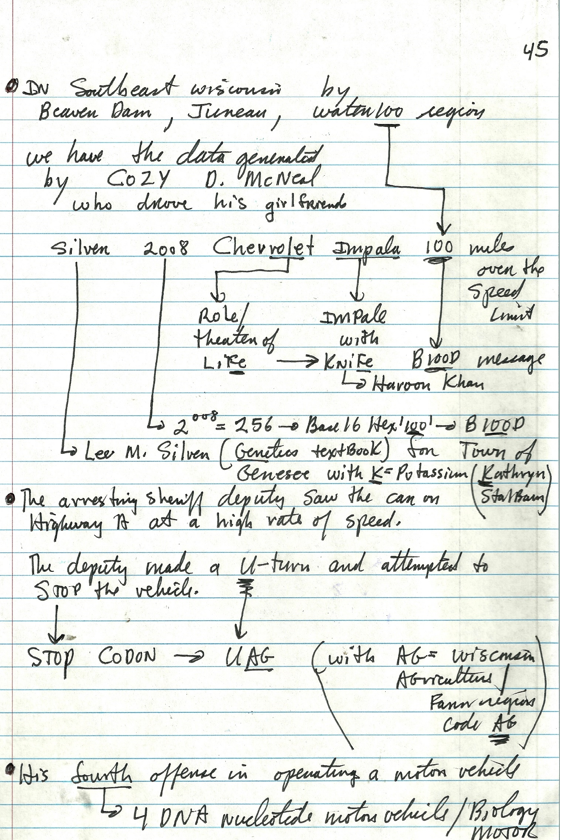 45
• IN Southeast wisconsin by
Beaver Dam, Juneau, water100 region
we have the data generated
by COZY D. McNeal
who drove his girlfriends
Silver 2008 Chevrolet Impala 100 miles
over the
Speed
Limit
Role/ IMPale
theater of with
LiFe → KNiFe B100D message
↳ Haroon Khan
↳ 2^008 = 256 → Base 16 Hex '100' → B100D
↳ Lee M. Silver (Genetics textBook) for Town of
Genesee with K=Potassium (Kathryn
StalBaum)
• The arresting sheriff deputy saw the car on
Highway A at a high rate of speed.
The deputy made a U-turn and attempted to
STOP the vehicle.
STOP CODON → UAG (with AG = wisconsin
AGriculture/
Farm region
code AG)
• His fourth offense in operating a motor vehicle
↳ 4 DNA nucleotide motor vehicle/Biology
motor